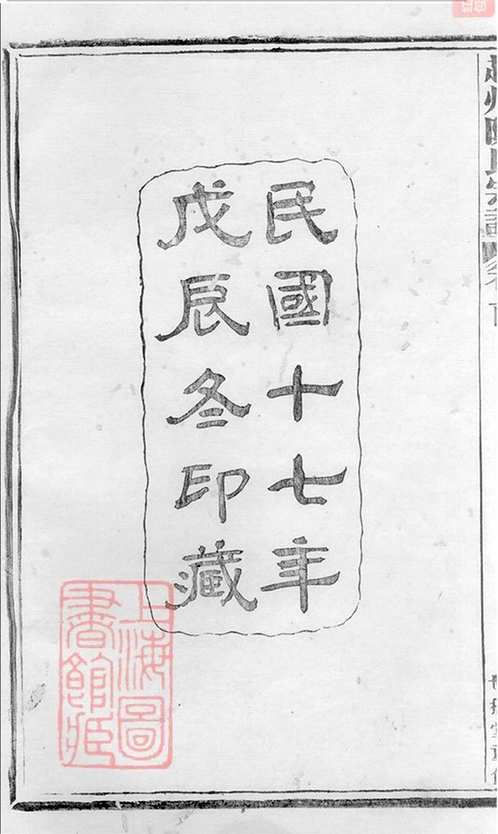 民國十七年
戊辰冬印藏
上海圖
書館藏